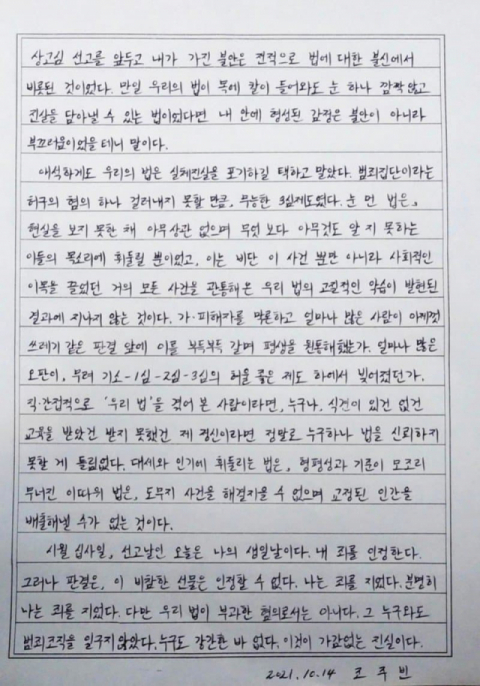 상고심 선고를 앞두고 내가 가진 불안은 전적으로 법에 대한 불신에서
비롯된 것이었다. 만일 우리의 법이 목에 칼이 들어와도 눈 하나 깜짝 않고
진실을 담아낼 수 있는 법이었다면 내 안에 형성된 감정은 불안이 아니라
부끄러움이었을 테니 말이다.
애석하게도 우리의 법은 실체진실을 포기하길 택하고 말았다. 범죄집단이라는
허구의 혐의 하나 걸러내지 못할 만큼, 무능한 3심제도였다. 눈 먼 법은,
현실을 보지 못한 채 아무상관 없으며 무엇 보다 아무것도 알 지 못하는
이들의 목소리에 휘둘릴 뿐이었고, 이는 비단 이 사건 뿐만 아니라 사회적인
이목을 끌었던 거의 모든 사건을 관통해온 우리 법의 고질적인 악습이 발현된
결과에 지나지 않는 것이다. 가·피해자를 막론하고 얼마나 많은 사람이 이제껏
쓰레기 같은 판결 앞에 이를 부득부득 갈며 평생을 원통해했는가. 얼마나 많은
오판이, 무려 기소-1심-2심-3심의 허울 좋은 제도 하에서 빚어졌던가.
직·간접적으로 '우리 법'을 겪어 본 사람이라면, 누구나. 식견이 있건 없건
교육을 받았건 받지 못했건 제 정신이라면 정말로 누구하나 법을 신뢰하지
못할 게 틀림없다. 대세와 인기에 휘둘리는 법은, 형평성과 기준이 모조리
무너진 이따위 법은, 도무지 사건을 해결지을 수 없으며 교정된 인간을
배출해낼 수가 없는 것이다.
시월 십사일, 선고날인 오늘은 나의 생일날이다. 내 죄를 인정한다.
그러나 판결은, 이 비참한 선물은 인정할 수 없다. 나는 죄를 지었다. 분명히
나는 죄를 지었다. 다만 우리 법이 부과한 혐의로서는 아니다. 그 누구와도
범죄조직을 일구지 않았다. 누구도 강간한 바 없다. 이것이 가감없는 진실이다.
2021. 10. 14 조 주 빈